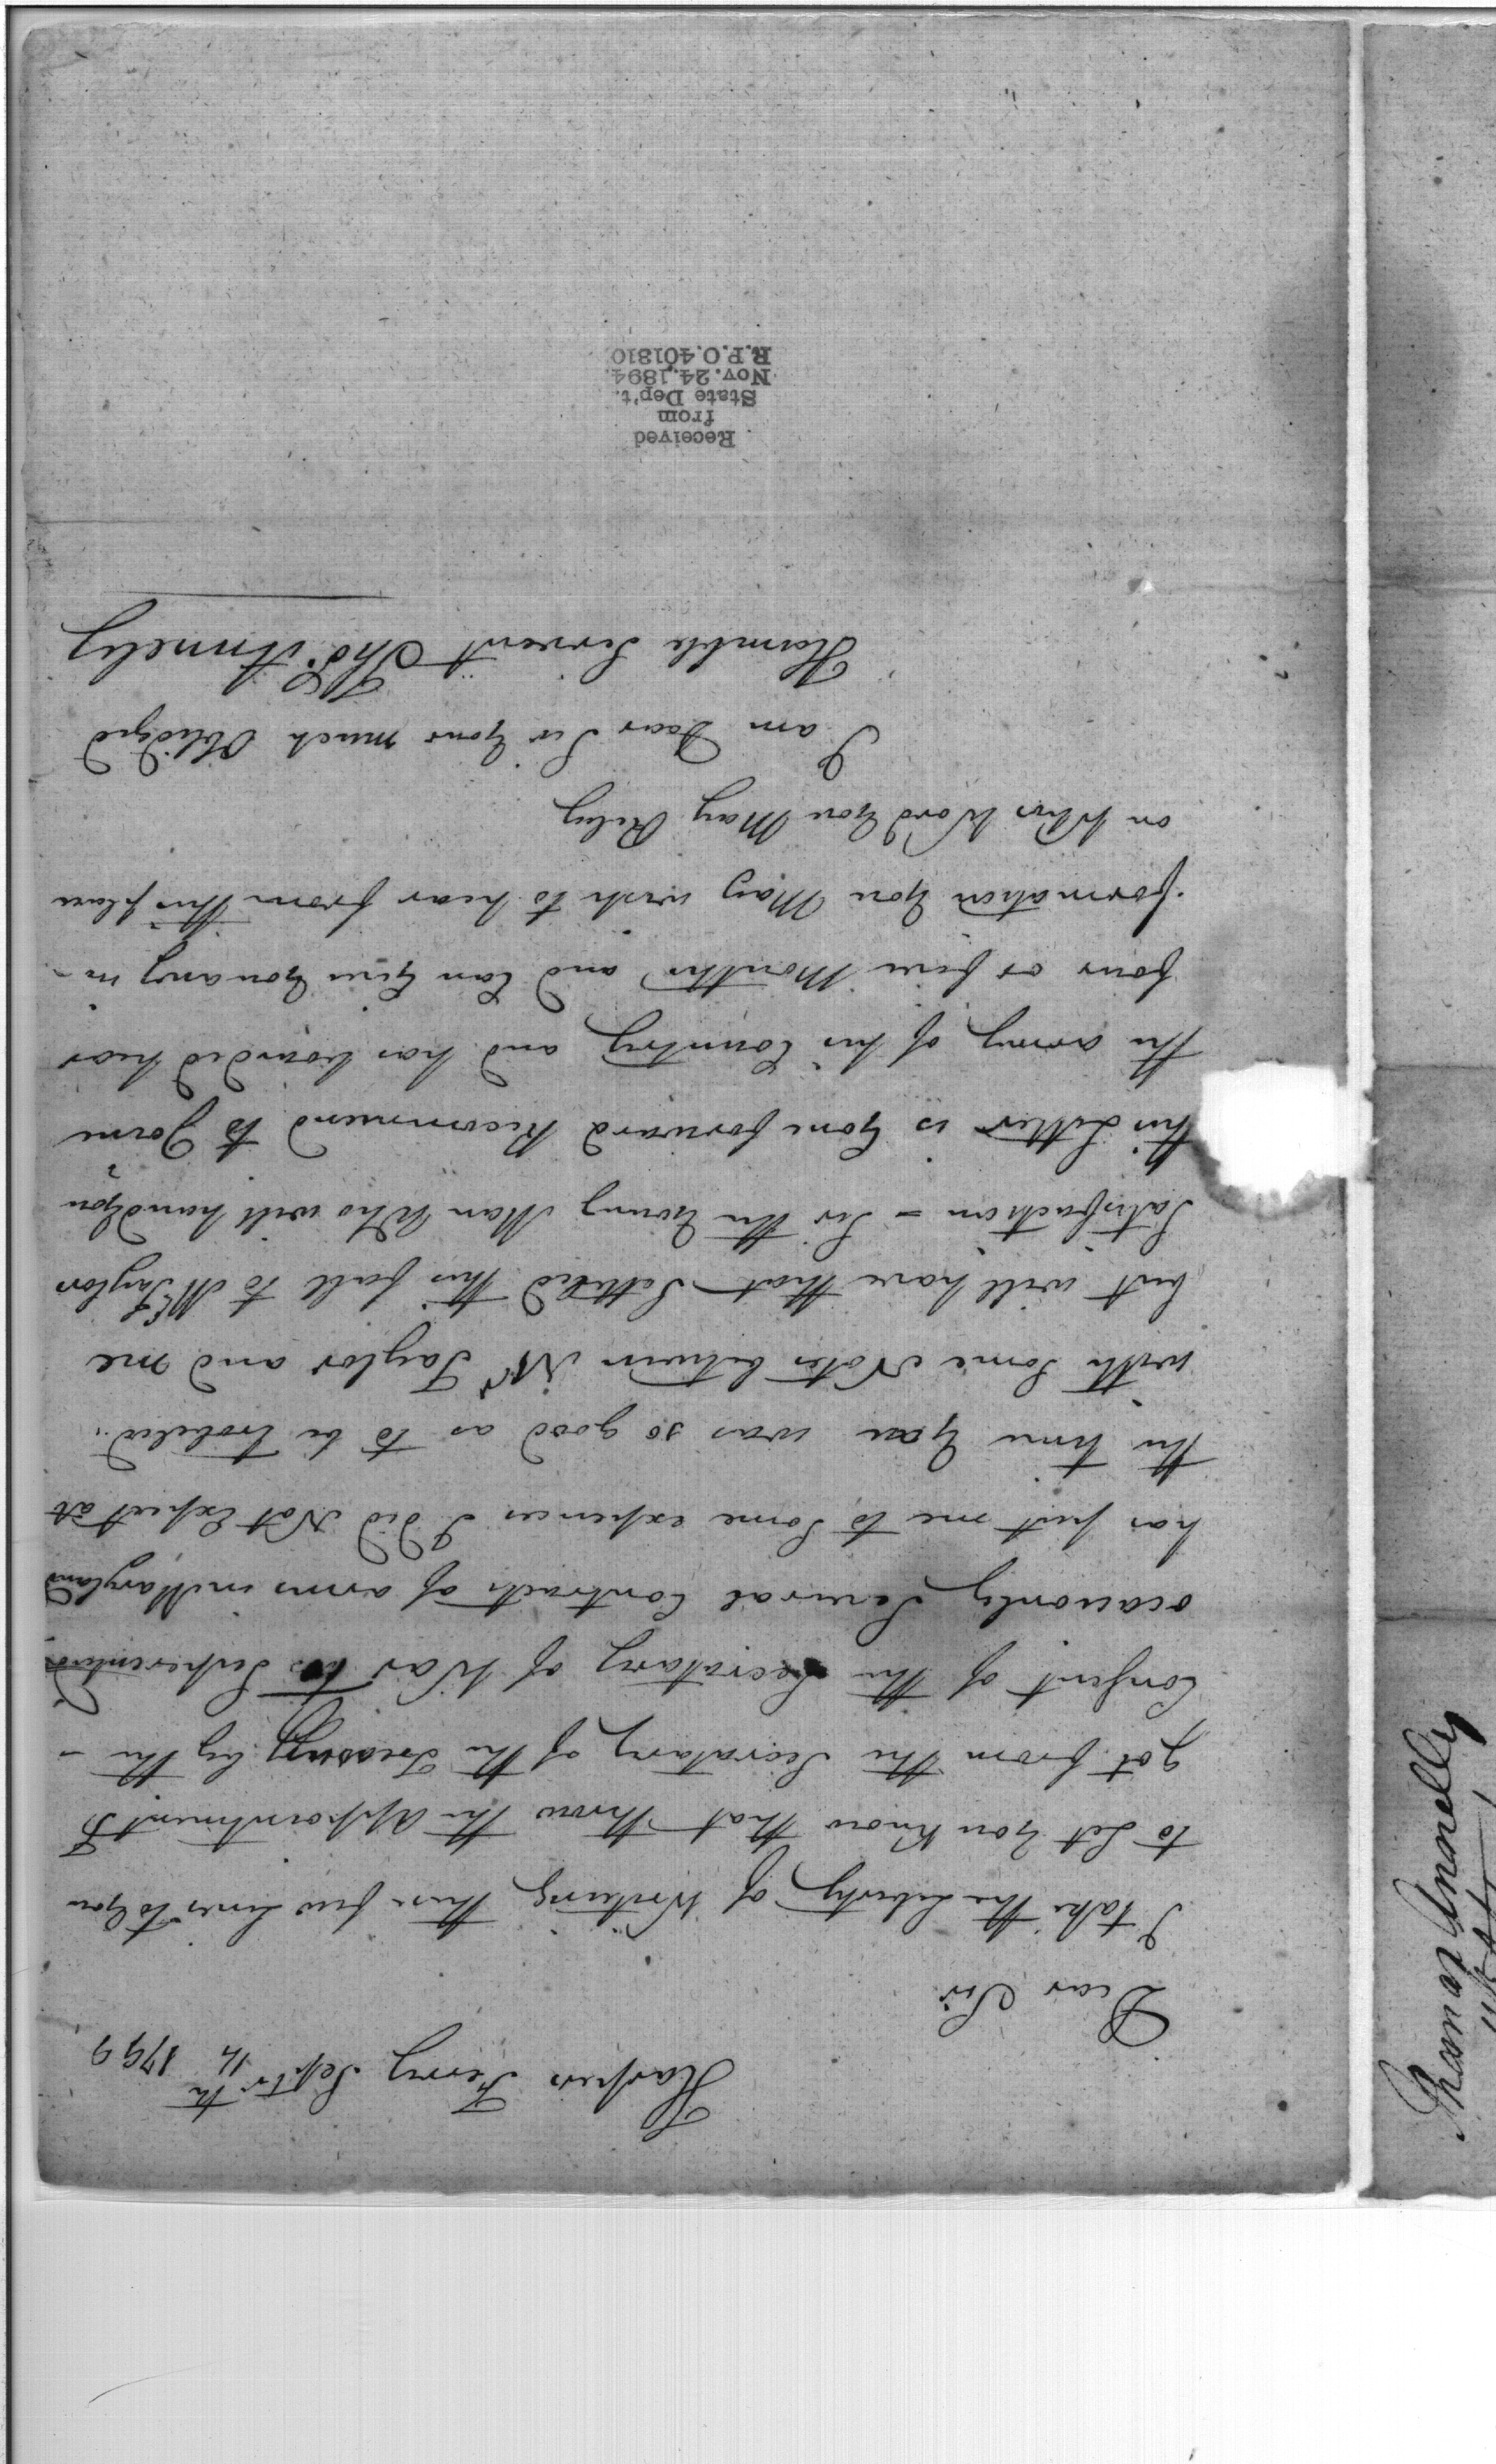 Harpers Ferry Septr 14th 1799
Dear Sir
I take the Liberty of Writeing these few Lines to You
to Let You Know that threw the appointment I
got from the Secratary of the Treasury by the -
Consent of the Secratary of War to Superentend
ocationly Several Contracts of arms in Maryland
has put me to Some expences I did Not Expect at
the time You was so good as to be trobeled
with Some Notes between Mr Taylor and me
but will have that Setteled this fall to Mr Taylor
Satisfaction - Sir the Young Man Who will hand You
this Letter is Gone forward Recommend to Joine
the army of his Country and has boarded hear
four or five Months and Can Give You any in-
formation You May wish to hear from this place
on Whos Word You May Reley
I am Dear Sir Your much Oblidged
Humble Servent Thos Annely
Received
from
State Dep't.
Nov. 24, 1894.
R.P.O. 401810
Thomas Annelly